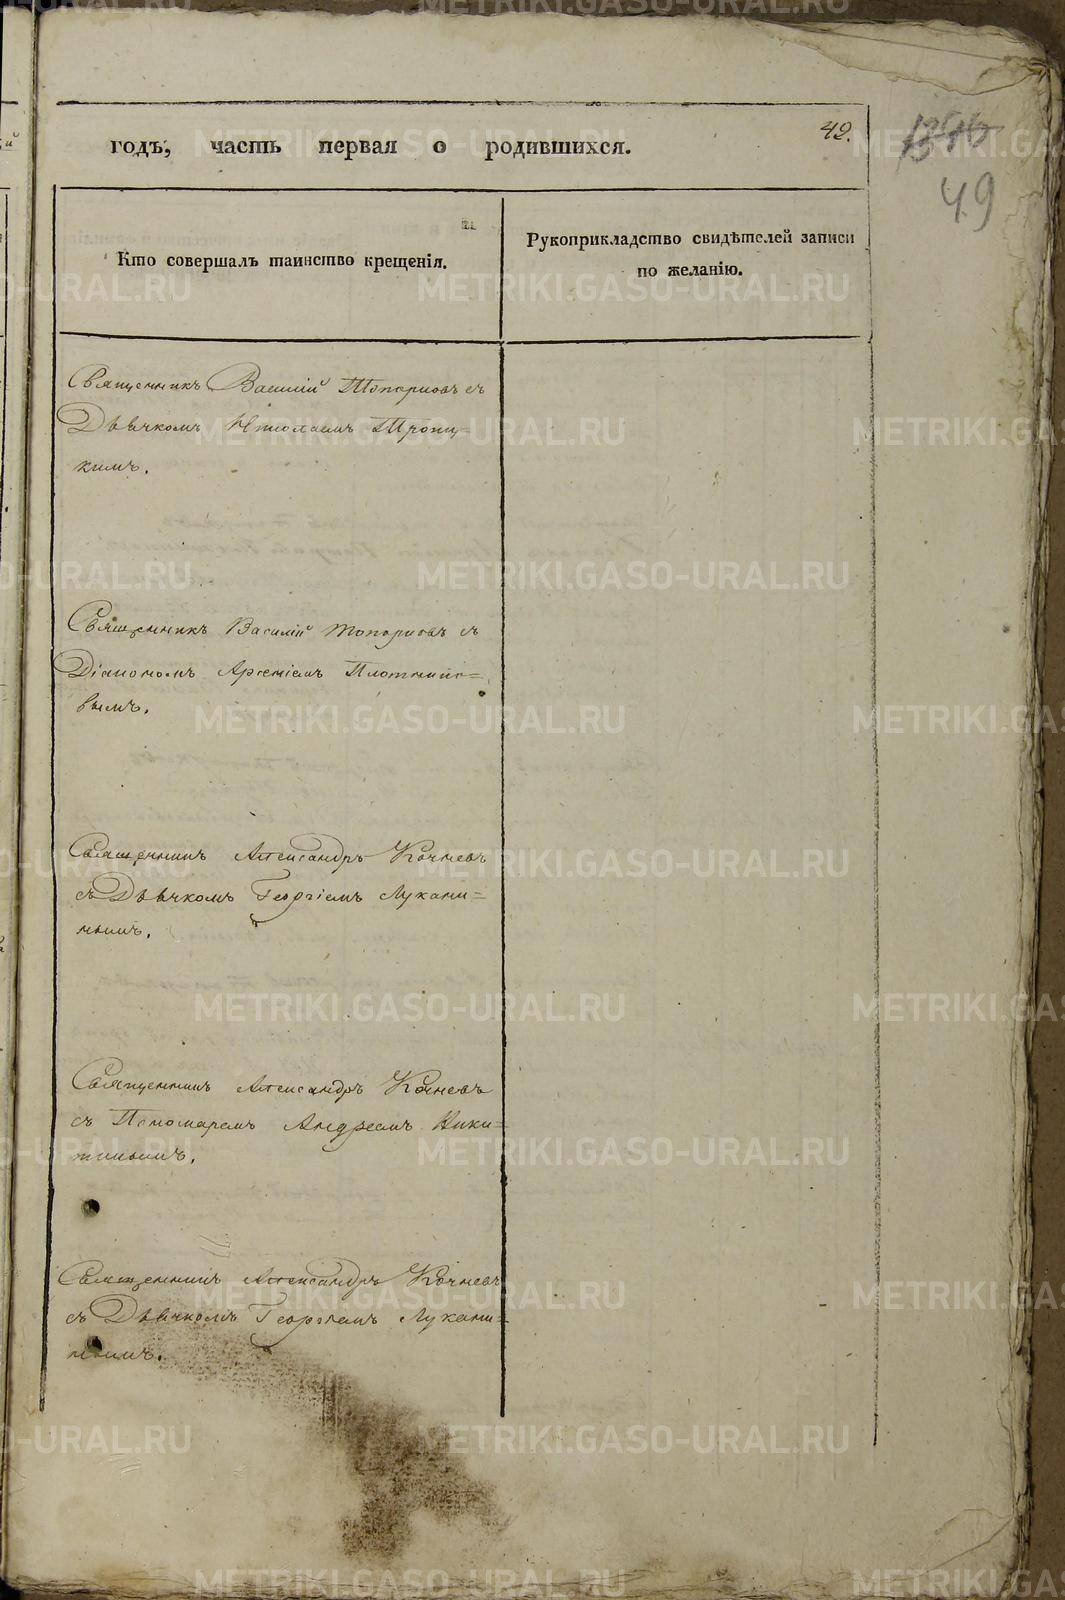 42.
49
годъ, часть первая о родившихся.
Кто совершалъ таинство крещенія.
Рукоприкладство свидѣтелей записи
по желанію.
Священникъ Василій Топорковъ съ
Дьячкомъ Николаемъ Троиц=
кимъ.
Священникъ Василій Топорковъ съ
Діакономъ Арсеніемъ Плотнико=
вымъ.
Священникъ Александръ Кочневъ
съ Дьячкомъ Георгіемъ Лукани=
нымъ.
Священникъ Александръ Кочневъ
съ Пономаремъ Андреемъ Ники=
тинымъ.
Священникъ Александръ Кочневъ
съ Дьячкомъ Георгіемъ Лукани=
нымъ.
METRIKI.GASO-URAL.RU